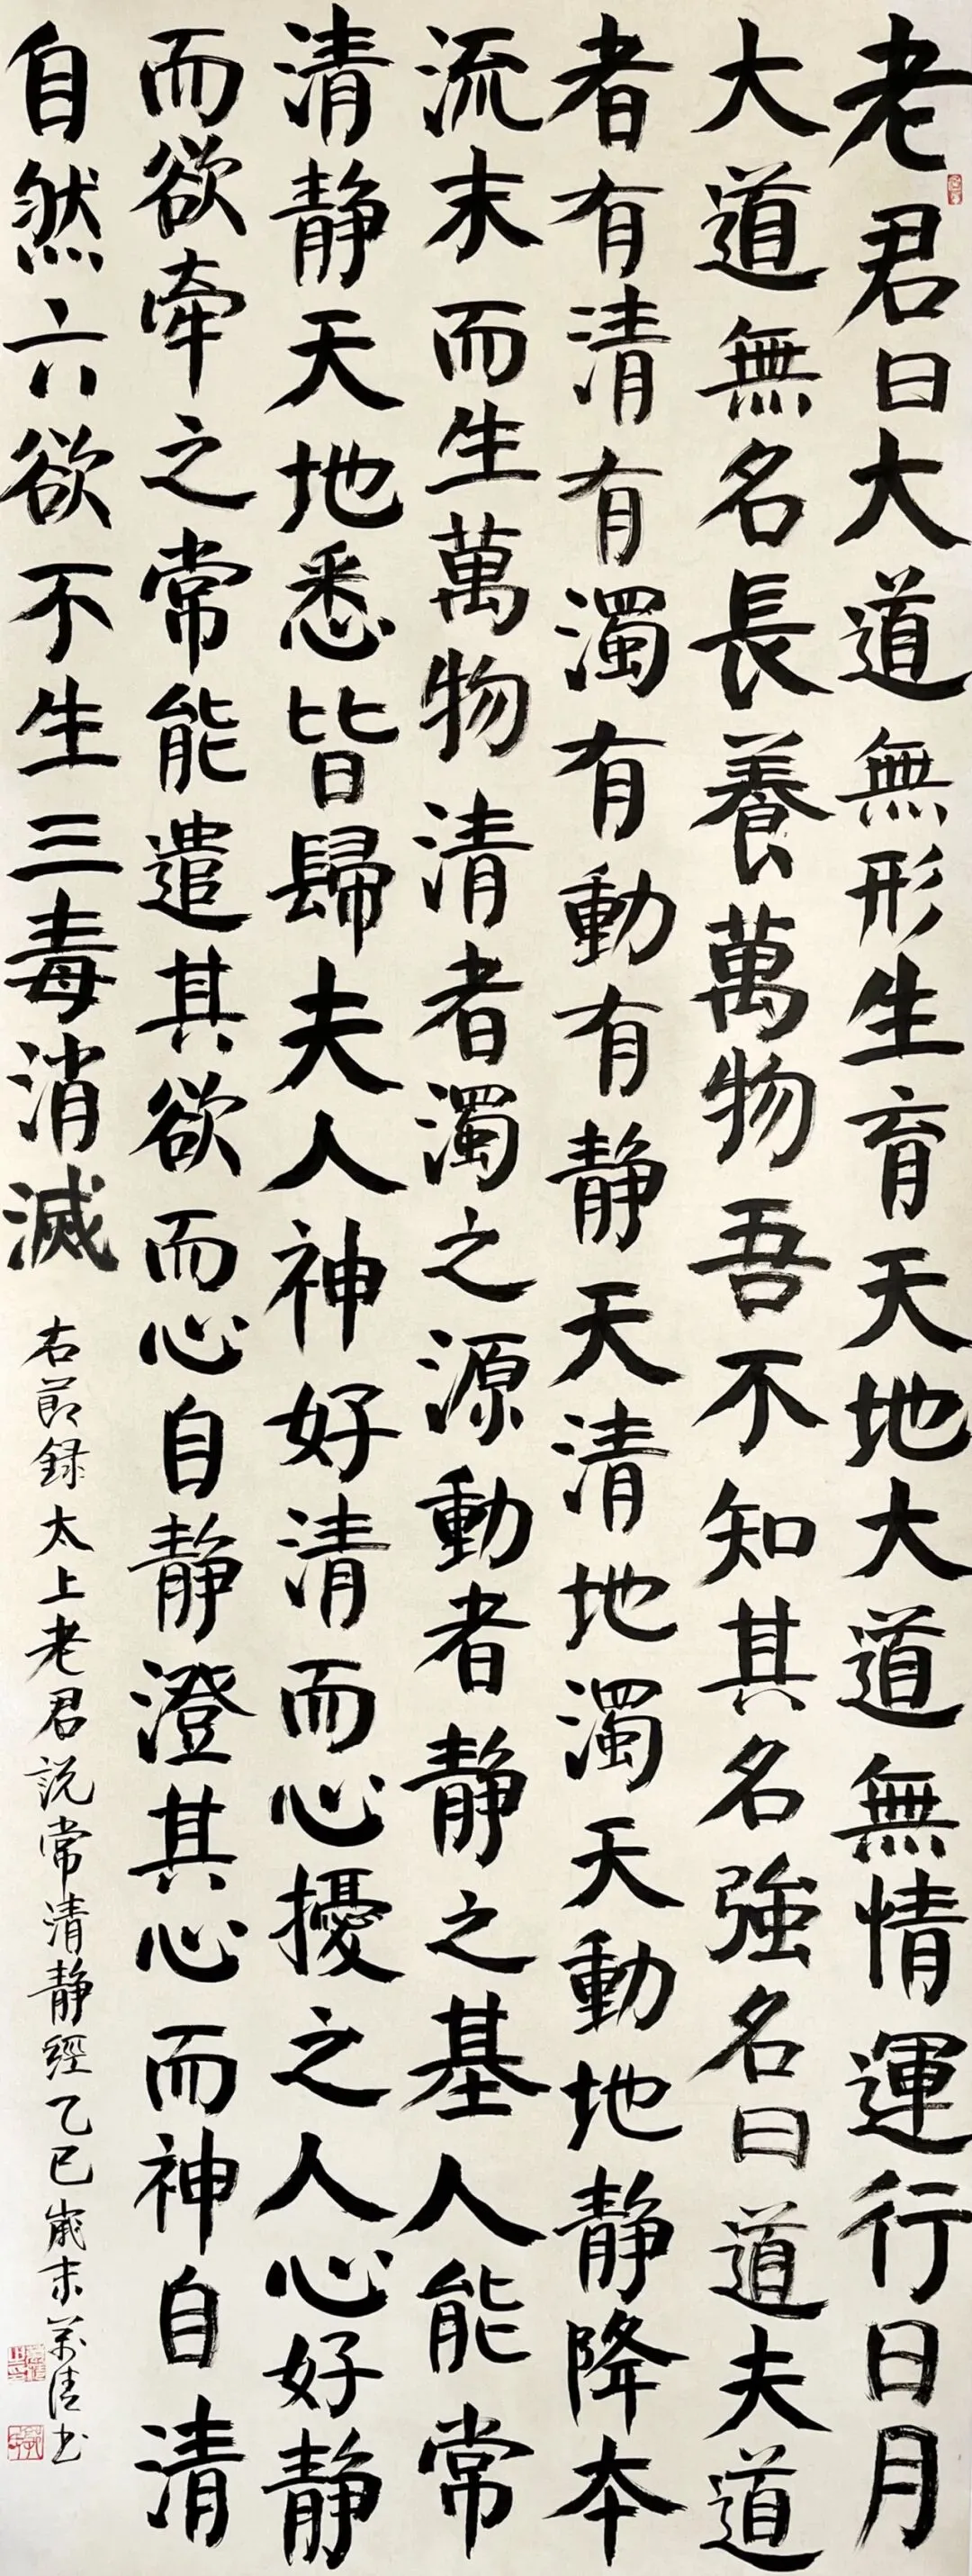 老君曰大道無形生育天地大道無情運行日月
大道無名長養萬物吾不知其名強名曰道夫道
者有清有濁有動有静天清地濁天動地静降本
流末而生萬物清者濁之源動者静之基人能常
清静天地悉皆歸夫人神好清而心擾之人心好静
而欲牽之常能遣其欲而心自静澄其心而神自清
自然六欲不生三毒消滅
右節録太上老君説常清静經乙巳歲末萬清书